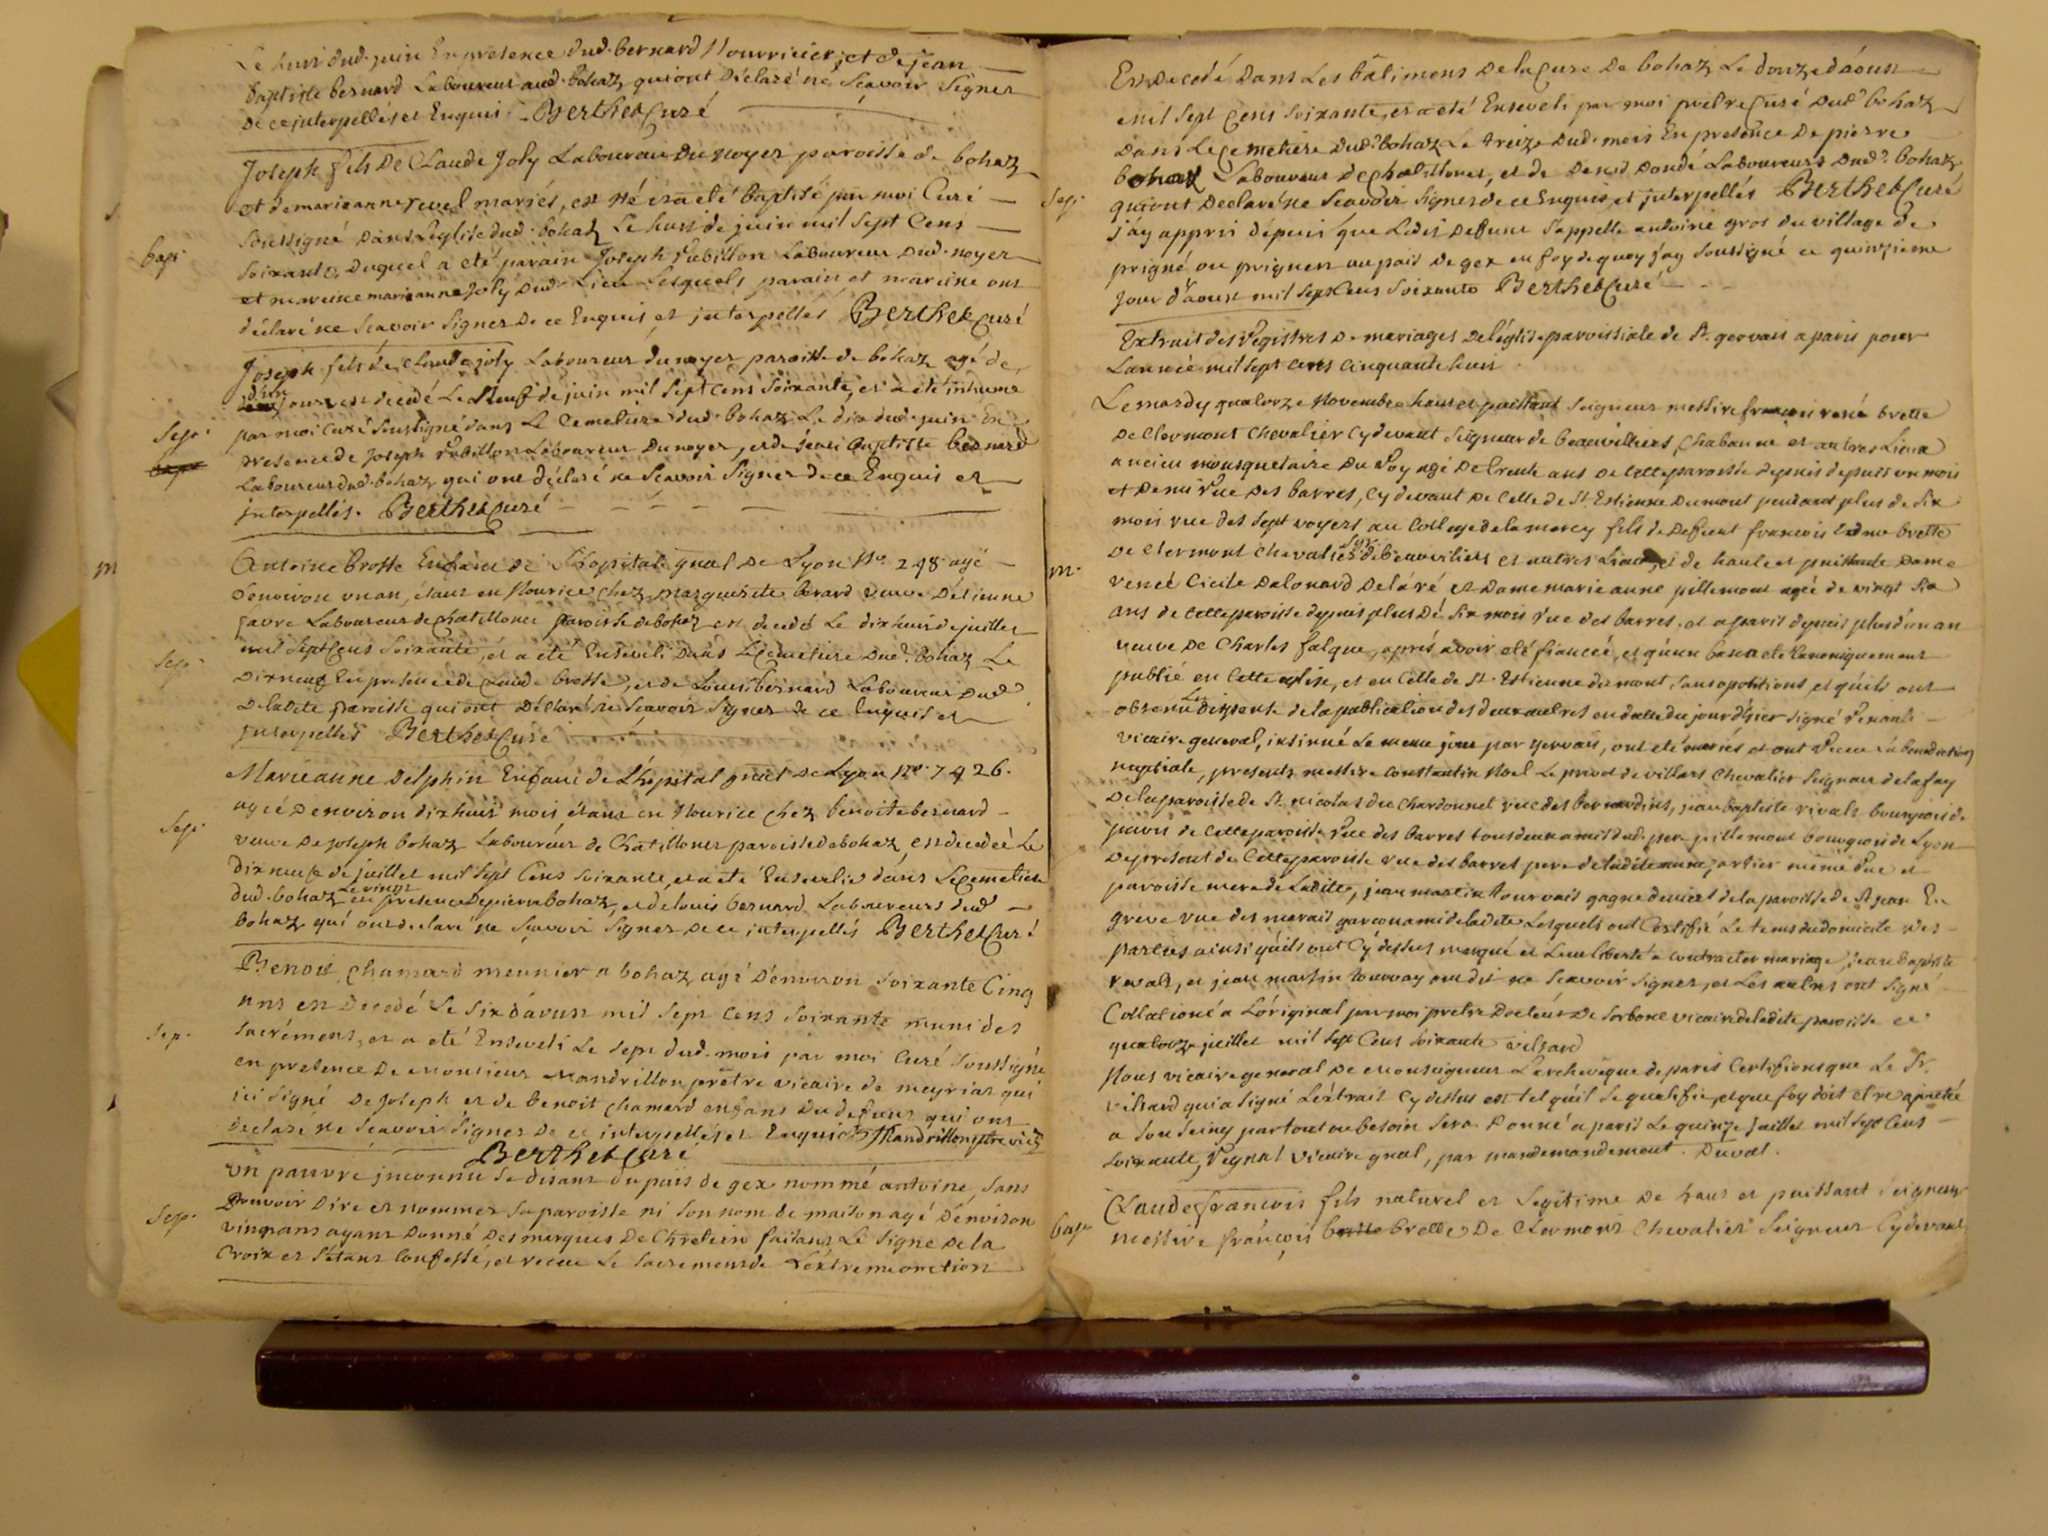 Le huit dud. juin En presence dud. bernard Nourricier, et de jean
baptiste bernard Laboureur aud. bohaz qui ont Déclaré ne Scavoir Signer
de ce interpellés et Enquis. Berthet Curé
Joseph fils De Claude Joly Laboureur Du noyer paroisse de bohaz
et de marie anne revel mariés, est né et a eté baptisé par moi Curé
bap. Soussigné Dans L'eglise dud. bohaz Le huit de juin mil Sept Cens
Soixante, Duquel a eté parain Joseph rubillon Laboureur Dud. noyer
et mareine marie anne Joly Dud. Lieu Lesquels parain et mareine ont
déclaré ne Scavoir Signer De ce Enquis et interpellés Berthet Curé
Joseph fils de Claude joly Laboureur du noyer paroisse de bohaz agé de
d'un jour est decedé Le Neuf de juin mil Sept Cens Soixante, et a eté inhumé
Sep. par moi Curé Soussigné dans Le Cemetiere dud. bohaz Le dix dud. juin En
presence de Joseph rubillon Laboureur Du noyer, et de jean baptiste bernard
Laboureur dud. bohaz qui ont déclaré ne Scavoir Signer de ce Enquis et
interpellés. Berthet Curé
Antoine brosse Enfant de L'hopital gnal De Lyon No. 248 agé
d'environ un an, étant en Nourice chez Marguerite berard veuve D'etienne
favre Laboureur de chatillonet paroisse de bohaz est decedé Le dixhuit de juillet
Sep. mil Sept Cens Soixante, et a eté Enseveli Dans Le Cemetiere Dud. bohaz Le
Dixneuf En presence de Claude brosse, et de Louis bernard Laboureur Dud
De ladite paroisse qui ont Déclaré ne Scavoir Signer de ce Enquis et
interpellés Berthet Curé
Marie anne Delphin Enfant de L'hopital gnal De Lyon No. 7426.
agée D'environ dixhuit mois étant en Nourice chez benoite bernard
Sep. veuve De Joseph bohaz Laboureur de Chatillonet paroisse de bohaz est decedeé Le
Dixneuf de juillet mil Sept Cens Soixante, et a eté Ensevelie dans Le Cemetiere
dud. bohaz Le vingt en presence De pierre bohaz, et de louis bernard Laboureurs dud.
bohaz qui ont declaré ne Scavoir Signer De ce interpellés Berthet Curé
Benoit Chamard meunier a bohaz agé D'environ Soixante Cinq
ans est Decedé Le Six d'aoust mil Sept Cens Soixante muni des
Sep. Sacrémens, et a eté Enseveli Le Sept dud. mois par moi Curé Soussigné
en presence De Monsieur Mandrillon prêtre vicaire de meyriat qui
ici Signé De Joseph et de benoit Chamard enfans Du defunt qui ont
declaré ne Scavoir Signer De ce interpellés et Enquis Mandrillon ptre vic.
Berthet Curé
Un pauvre inconnu Se disant du païs de gex nommé antoine, Sans
Sep. Pouvoir Dire et nommer Sa paroisse ni Son nom de maison agé D'environ
vingt ans ayant Donné Des marques De Chretien faisant Le Signe De la
Croix et S'étant Confessé, et receu Le Sacrement de L'extremeonction
Est Decedé Dans Les bâtimens De la Cure De bohaz Le douze d'aoust
mil Sept Cens Soixante, et a eté Enseveli par moi prêtre Curé Dud. bohaz
Dans Le Cemetiere Dud. bohaz Le treize Dud. mois En presence De pierre
bohaz Laboureur De Chatillonet, et de Denis Donde Laboureurs Dud. bohaz
Sep. qui ont Declaré ne Scavoir Signer de ce Enquis et interpellés Berthet Curé
j'ay appris dépuis que Ledit Defunt S'appelle antoine gros du village de
prigné ou prignen au païs De gex en foy de quoy j'ay Soussigné ce quinzieme
Jour d'aoust mil Sept Cens Soixante Berthet Curé
Extrait des Registres De mariages De l'églis paroissiale de St. gervais a paris pour
L'année mil Sept Cens Cinquante huit
Le mardy quatorze Novembre haut et puissant Seigneur messire francois rené brette
De Clermont Chevalier Cy devant Seigneur de beauvilliers, Chabanne et autres Lieux
ancien mousquetaire Du Roy agé De trente ans De Cette paroisse depuis depuis un mois
et Demi rue Des barres, Cy devant De Celle de St. Estienne Du mont pendant plus de Six
mois rue des Sept voyers au College de la mercy fils de Defunt francois Edme brette
m. De Clermont Chevalier Sgr. de beauviliers et autres Lieux, et de haute et puissante Dame
reneé Cecile Dalonard Deláré et Dame marie anne pillemont agé de vingt Six
ans de Cette paroisse depuis plus De Six mois rue des barres, et a paris depuis plus d'un an
veuve De Charles falque, aprés avoir eté fianceé, et qu'un ban a eté Canoniquement
publié en Cette eglise, et en Celle de St. Estienne du mont, Sans opositions et qu'ils ont
obtenu La Dispense de la publication des deux autres en datte du jour d'hier Signé
vicaire general, insinué Le meme jour par gervais, ont eté mariés et ont receu La benediction
nuptiale, presents messire Constantin Noel Le privot de villars Chevalier Seigneur de la fay
De la paroisse de St. nicolas du Chardonnet rue des bernardins, jean baptiste rivals bourgeois de
paris de Cette paroisse rue des barres tous deux amis dud. pillemont bourgeois de Lyon
De présent de Cette paroisse rue des barres pere de Ladite anne, artier même rue et
paroisse mere de Ladite, jean martin tourvais gagne deniers de la paroisse de St jean En
greve rue du marais garcon ami de ladite Lesquels ont Certifié Le tems du domicile des
parties ainsi qu'ils ont Cy dessus marqué et Leur liberté a contracter mariage, jean baptiste
rivals, et jean martin ont dit ne Scavoir Signer, et Les autres ont Signé
Collationé a L'original par moi pretre Docteur De Sorbone vicaire de ladite paroisse ce
quatorze juillet mil Sept Cens Soixante vilsard
Nous vicaire general De Monseigneur L'archevéque de paris Certifions que Le Sr.
vilsard qui a signé L'extrait Cy dessus est tel qu'il Se qualifie, et que foy doit etre ajoutée
a Son Seing partout ou besoin Sera Donné a paris Le quinze juillet mil Sept Cens
Soixante, regnal vicaire gnal, par mandement. Duval.
Claude francois fils naturel et Legitime De haut et puissant Seigneur
bap. messire françois brette De Clermont Chevalier Seigneur Cy devant